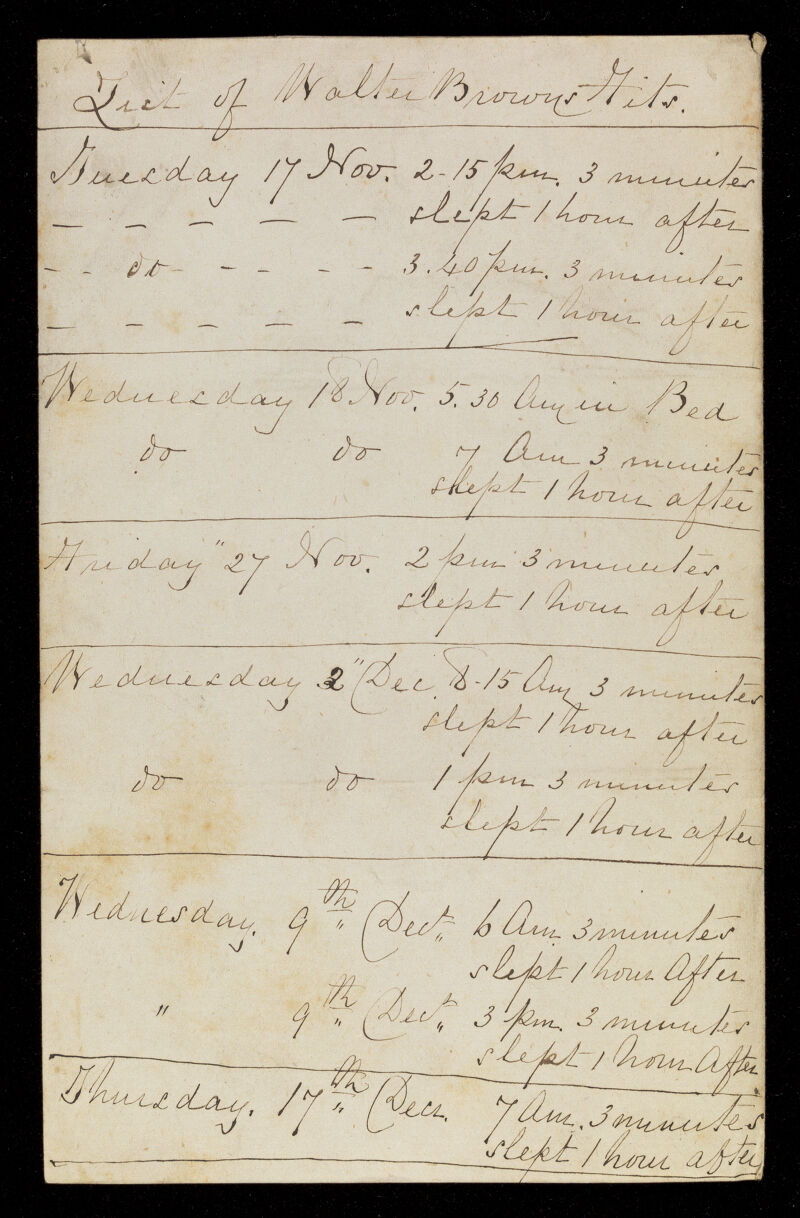 List of Walter Browns Fits.
Tuesday 17 Nov. 2-15 pm. 3 minutes
— — — — — slept 1 hour after
- - do - - - - - 3.40 pm. 3 minutes
— — — — — slept 1 hour after
Wednesday 18 Nov. 5.30 Am in Bed
do do 7 Am 3 minutes
slept 1 hour after
Friday " 27 Nov. 2 pm 3 minutes
slept 1 hour after
Wednesday 2" Dec. 8-15 Am 3 minutes
slept 1 hour after
do do 1 pm 3 minutes
slept 1 hour after
Wednesday. 9th" Decr" 6 Am 3 minutes
slept 1 hour After
" 9th" Decr" 3 pm. 3 minutes
slept 1 hour After
Thursday. 17th" Decr. 7 Am. 3 minutes
slept 1 hour after